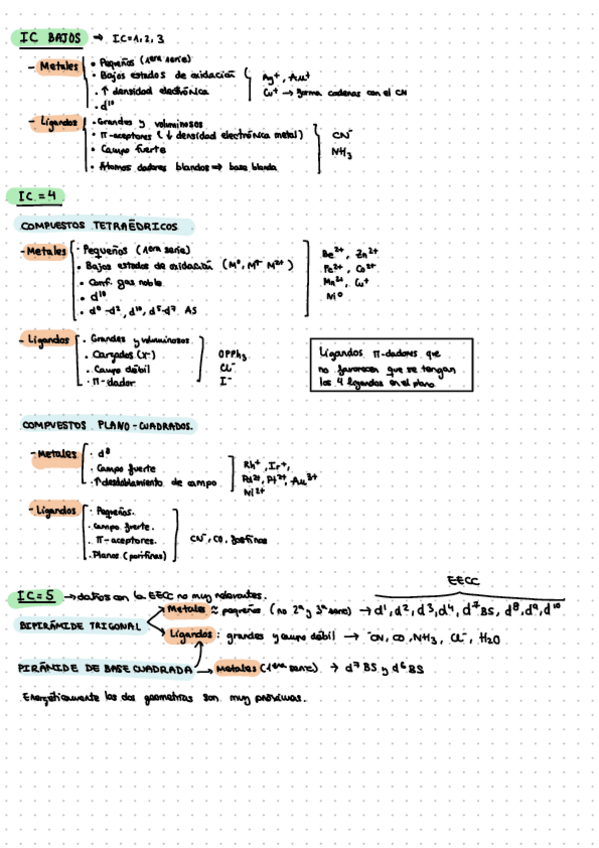 IC BAJOS → IC=1,2,3
- Metales
• Pequeños (1era serie)
• Bajos estados de oxidación
• ↑ densidad electrónica
• d10
Ag+, Au+
Cu+ → forma cadenas con el CN
- Ligandos
• Grandes y voluminosos
• π-aceptores (↓ densidad electrónica metal)
• Campo fuerte
• Átomos dadores blandos ⇒ base blanda
CN-
NH3
IC = 4
COMPUESTOS TETRAÉDRICOS
- Metales
• Pequeños (1era serie)
• Bajos estados de oxidación (M0, M+ M2+)
• Conf. gas noble
• d10
• d0-d2, d10, d5-d7 AS
Be2+, Zn2+
Fe2+, Co2+
Mn2+, Cu+
Ni0
- Ligandos
• Grandes y voluminosos
• Cargados (X-)
• Campo débil
• π-dador
OPPh3
Cl-
I-
Ligandos π-dadores que
no favorecen que se tengan
los 4 ligandos en el plano
COMPUESTOS PLANO-CUADRADOS.
- Metales
• d8
• Campo fuerte
• ↑ desdoblamiento de campo
Rh+, Ir+,
Pd2+, Pt2+, Au3+
Ni2+
- Ligandos
• Pequeños.
• Campo fuerte.
• π-aceptores.
• Planos (porfinas)
CN-, CO, fosfinas
IC = 5 → datos con la EECC no muy relevantes.
EECC
BIPIRÁMIDE TRIGONAL
Metales ≈ pequeños (no 2a y 3a serie) → d1, d2, d3, d4, d7 BS, d8, d9, d10
Ligandos: grandes y campo débil → CN, CO, NH3, Cl-, H2O
PIRÁMIDE DE BASE CUADRADA → Metales (1era serie) → d7 BS y d6 BS
Energéticamente las dos geometrías son muy próximas.